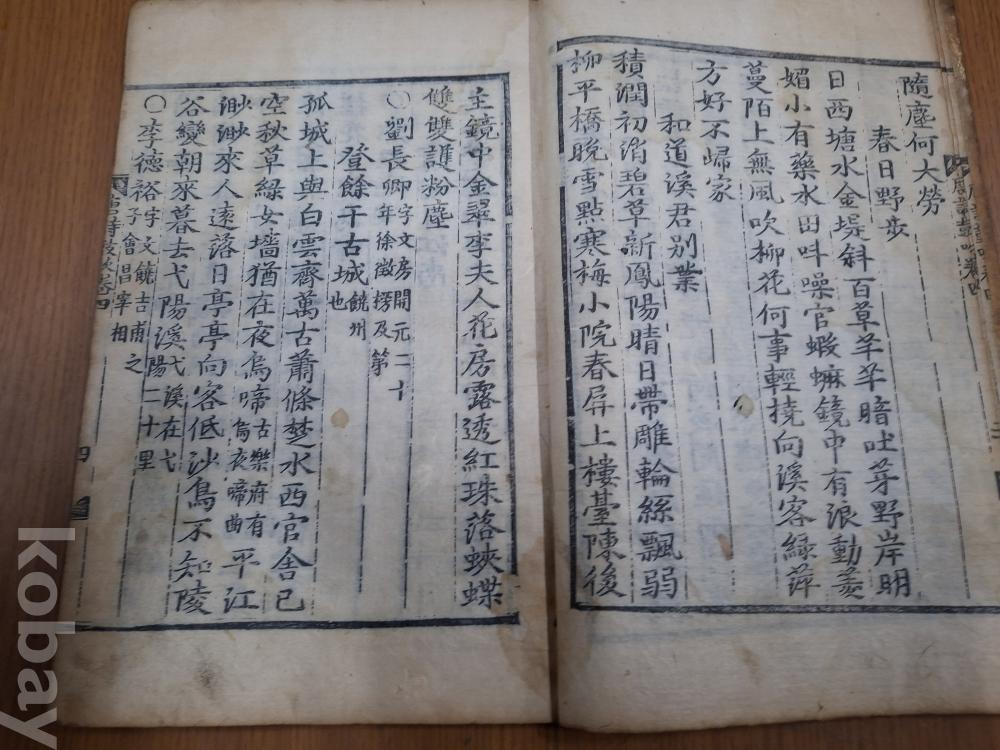 隨塵何大勞
春日野步
日西塘水金堤斜百草芊芊暗吐芽野岸明
媚小有藥水田叫噪官蝦蟆鏡中有浪動菱
蔓陌上無風吹柳花何事輕橈向溪客綠萍
方好不歸家
和道溪君別業
積潤初消碧草新鳳陽晴日帶雕輪絲飄弱
柳平橋晚雪點寒梅小院春屏上樓臺陳後
主鏡中金翠李夫人花房露透紅珠落蛺蝶
雙雙護粉塵
〇劉長卿字文房開元二十年徐徵榜及第
登餘干古城饒州也
孤城上與白雲齊萬古蕭條楚水西官舍已
空秋草綠女墻猶在夜烏啼古樂府有烏夜啼曲平江
渺渺來人遠落日亭亭向客低沙鳥不知陵
谷變朝來暮去弋陽溪弋陽溪在弋陽二十里
〇李德裕字文饒吉甫之子會昌宰相
四
kobay